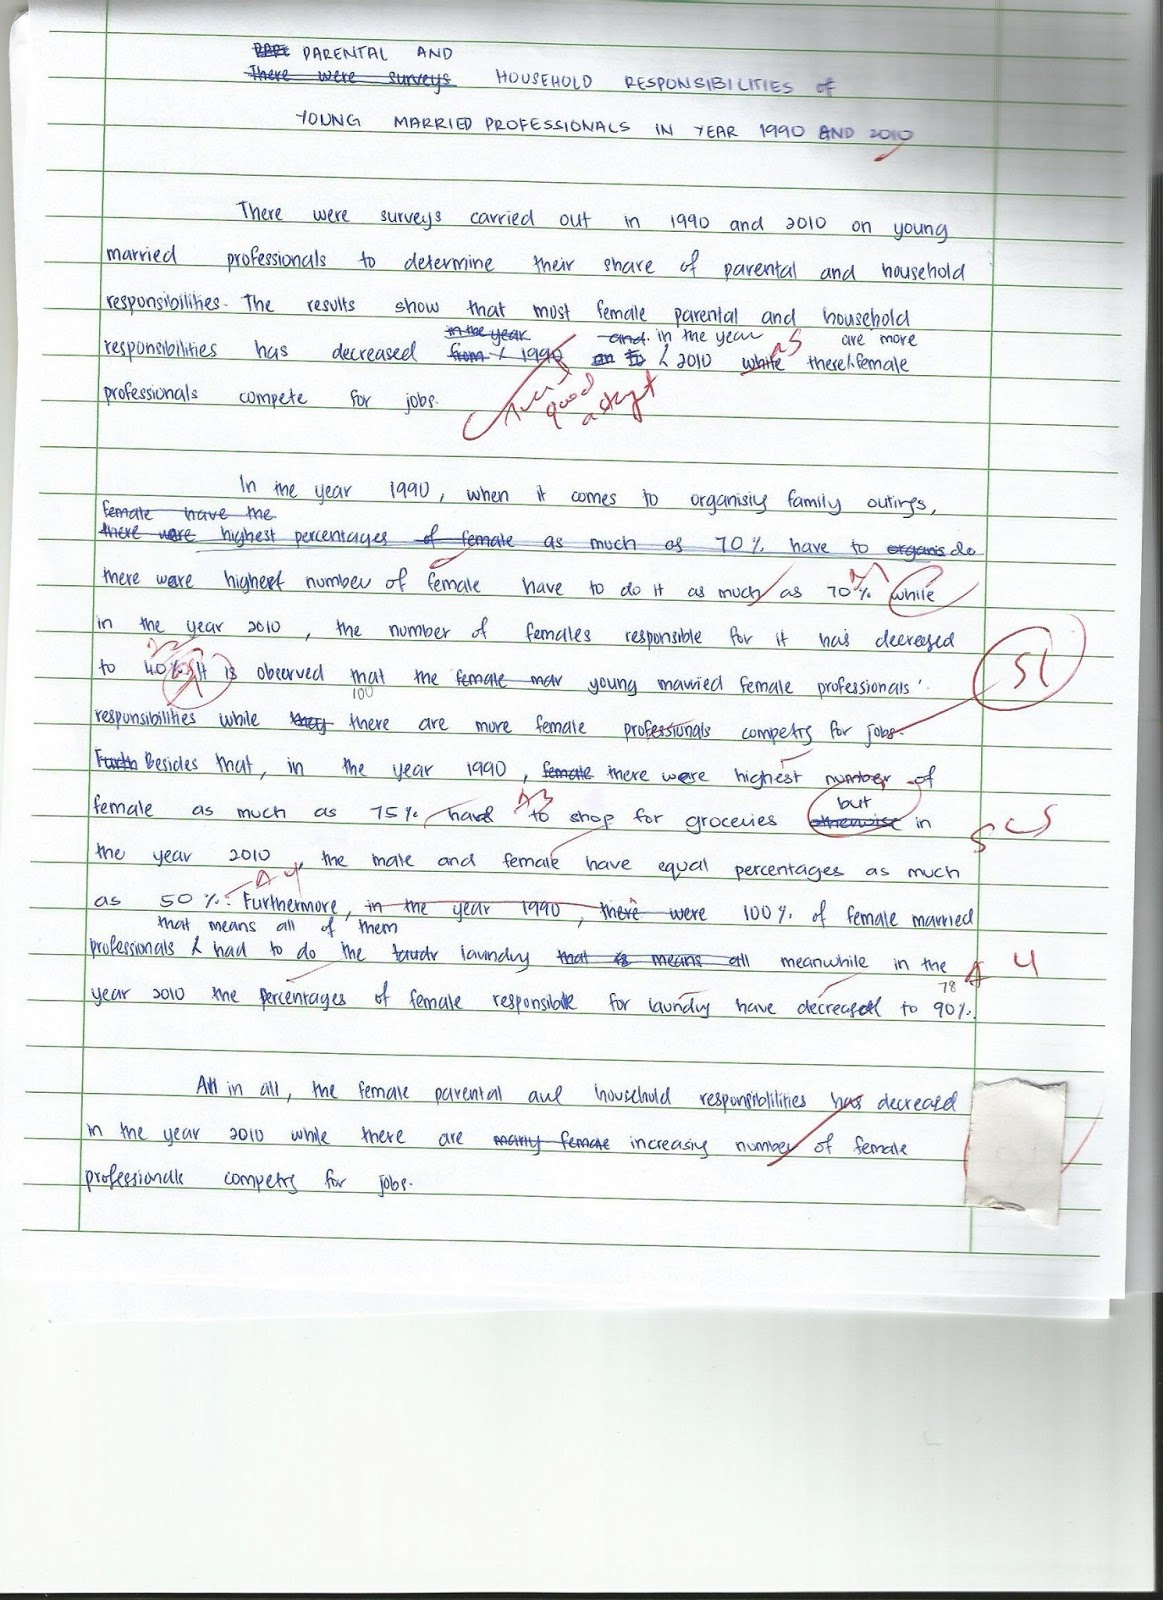 PARENTAL AND
There were surveys HOUSEHOLD RESPONSIBILITIES of
YOUNG MARRIED PROFESSIONALS IN YEAR 1990 AND 2010
There were surveys carried out in 1990 and 2010 on young
married professionals to determine their share of parental and household
responsibilities. The results show that most female parental and household
in the year and in the year as are more
responsibilities has decreased from 1990 2010 while there female
professionals compete for jobs.
very good adapt
In the year 1990, when it comes to organisiy family outings,
female have the
there were highest percentages of female as much as 70% have to organis do
there were highest number of female have to do it as much as 70% while
A1
in the year 2010, the number of females responsible for it has decreased
A2
to 40%. It is observed that the female mar young married female professionals'
S1
100
responsibilities while they there are more female professionals competg for jobs.
Furth Besides that, in the year 1990, female there were highest number of
A3 but
female as much as 75% had to shop for groceries otherwise in
the year 2010 the male and female have equal percentages as much
A4
as 50%. Furthermore, in the year 1990, there were 100% of female married
that means all of them
professionals had to do the laundry that is means all meanwhile in the
4
78
year 2010 the percentages of female responsible for laundry have decreased to 90%.
All in all, the female parental and household responsiblilities has decreased
in the year 2010 while there are many female increasiy number of female
professionals competg for jobs.